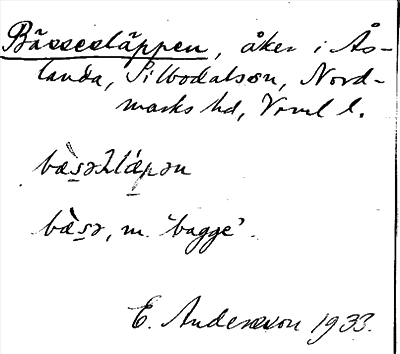 Bässesläppen, åker i Ås-
landa, Silbodalssn, Nord-
marks hd, Vrml l.
bæ̀s̱əslä́pən
bæ̀s̱ə, m. 'bagge'.
E. Andersson 1933.